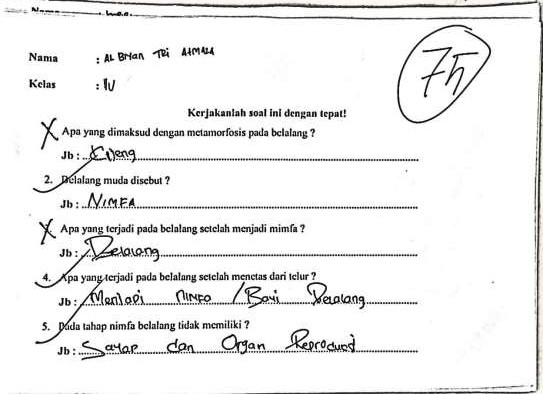 Nama : AL BryAn TRi AtMAJA
Kelas : IV
75
Kerjakanlah soal ini dengan tepat!
Apa yang dimaksud dengan metamorfosis pada belalang ?
Jb :
2. Belalang muda disebut ?
Jb : NIMFA
Apa yang terjadi pada belalang setelah menjadi mimfa ?
Jb : Belalang
4. Apa yang terjadi pada belalang setelah menetas dari telur ?
Jb : Menjadi NIMFA / Bayi Belalang
5. Pada tahap nimfa belalang tidak memiliki ?
Jb : Sayap dan Organ Reproduksi